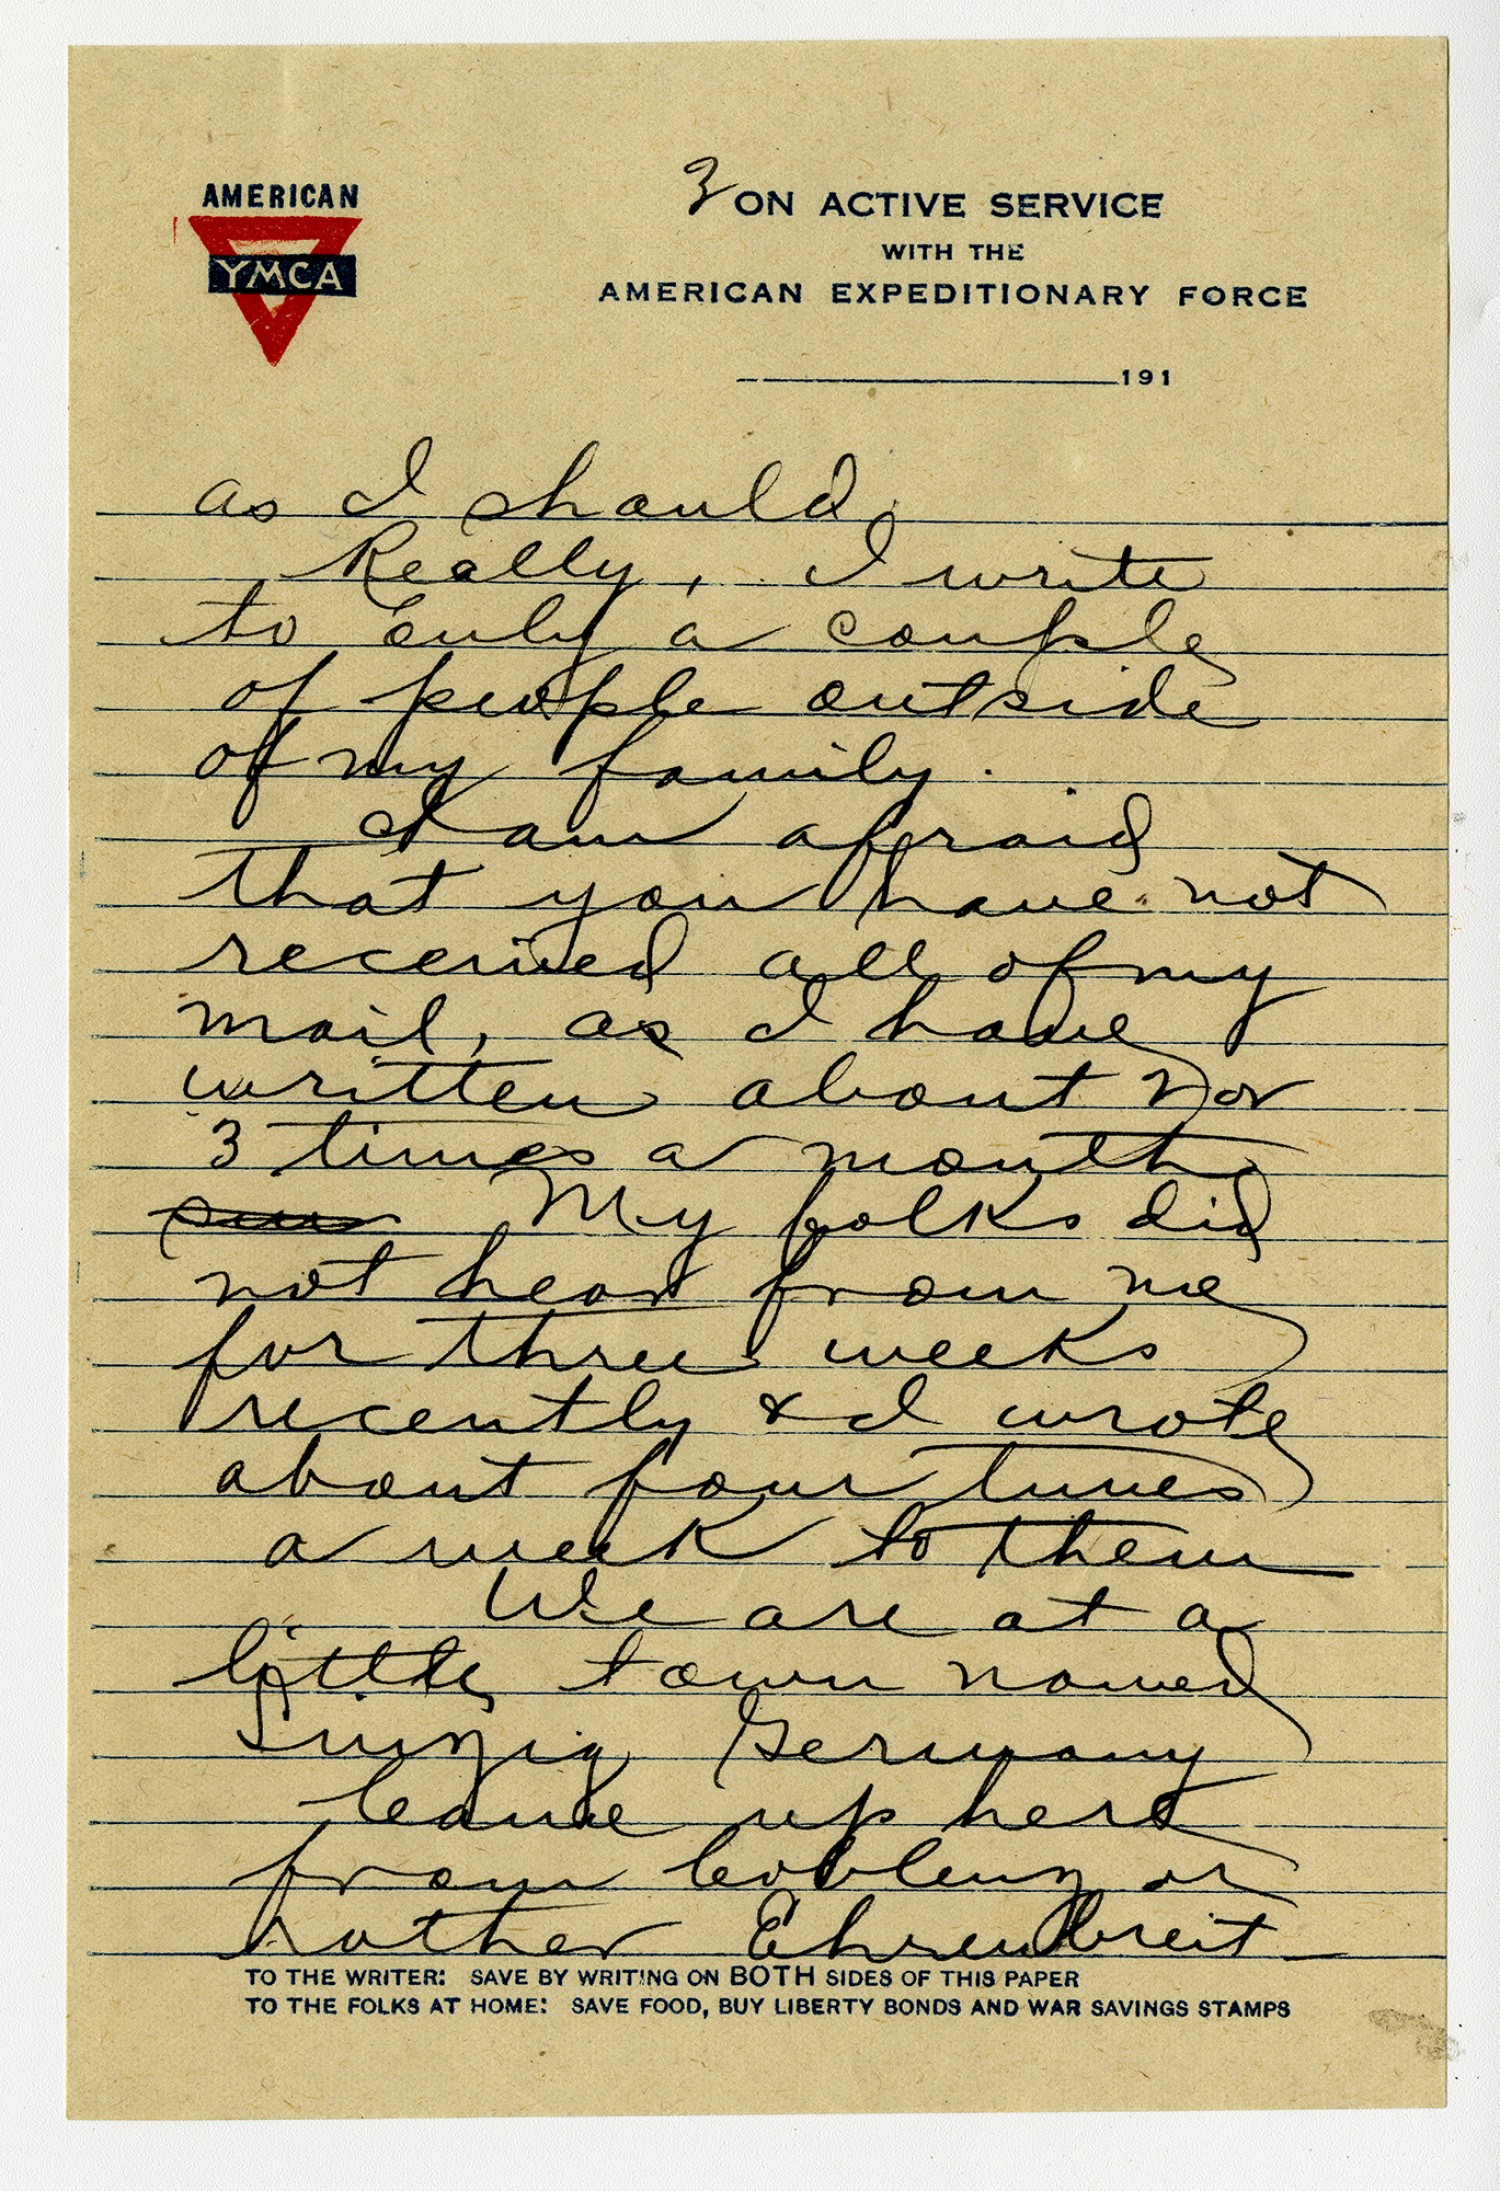 AMERICAN
YMCA
3 ON ACTIVE SERVICE
WITH THE
AMERICAN EXPEDITIONARY FORCE
191
as I should.
Really, I write
to only a couple
of people outside
of my family.
I am afraid
that you have not
received all of my
mail, as I have
written about 2 or
3 times a month
My folks did
not hear from me
for three weeks
recently & I wrote
about four times
a week to them
We are at a
little town named
Sinzig Germany
Came up here
from Coblenz or
rather Ehrenbreit-
TO THE WRITER: SAVE BY WRITING ON BOTH SIDES OF THIS PAPER
TO THE FOLKS AT HOME: SAVE FOOD, BUY LIBERTY BONDS AND WAR SAVINGS STAMPS